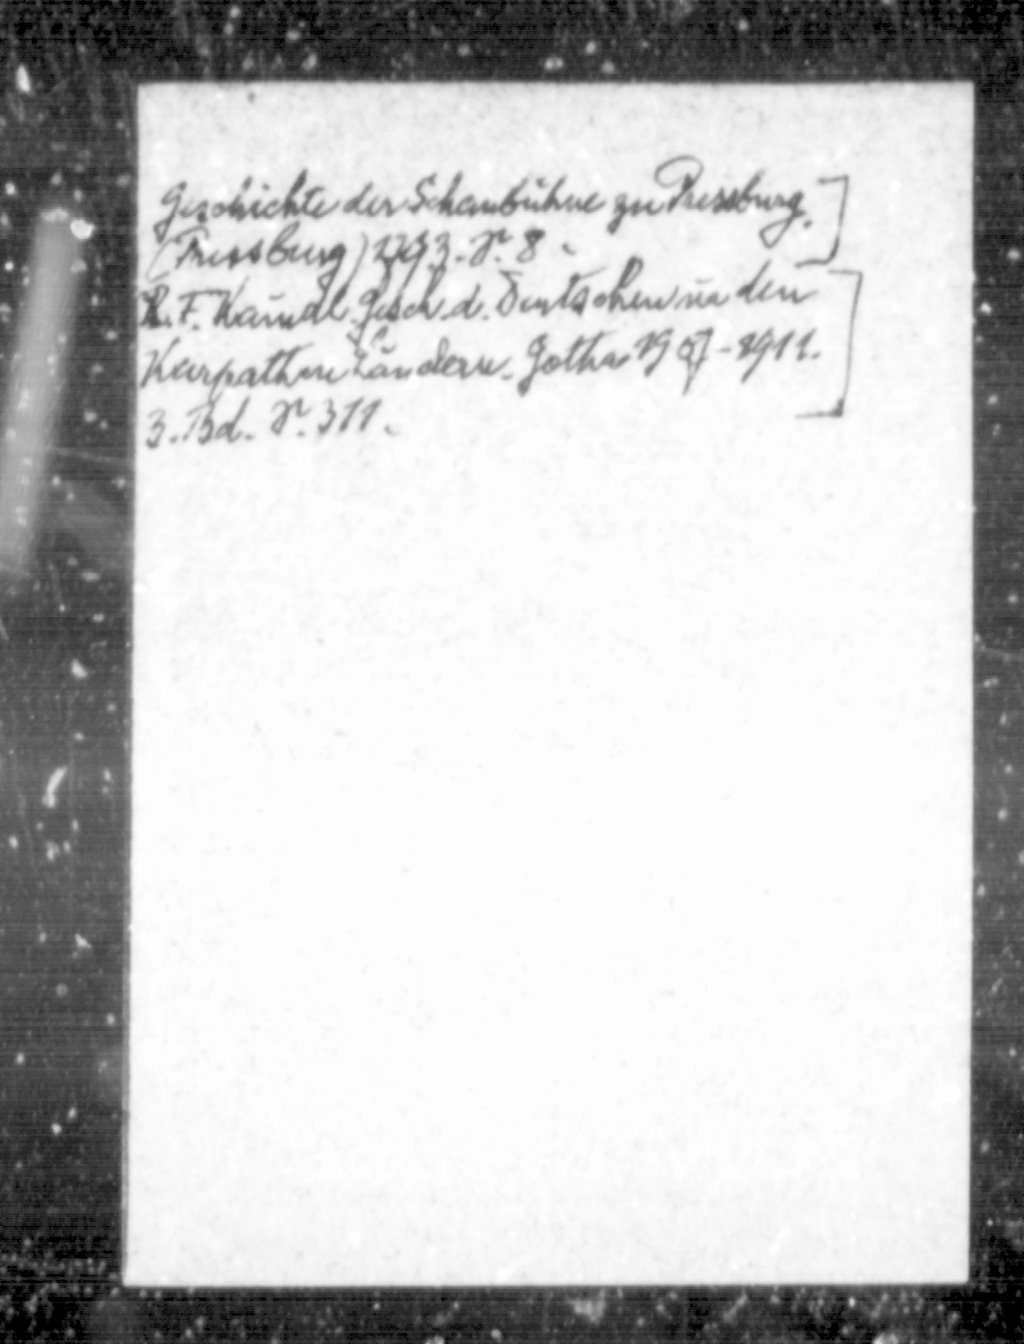 Geschichte der Schaubühne zu Pressburg.
(Pressburg) 1793. Nr. 8.
R. F. Kaindl. Gesch. d. Deutschen in den
Karpathen Ländern. Gotha 1907-1911.
3. Bd. Nr. 311.